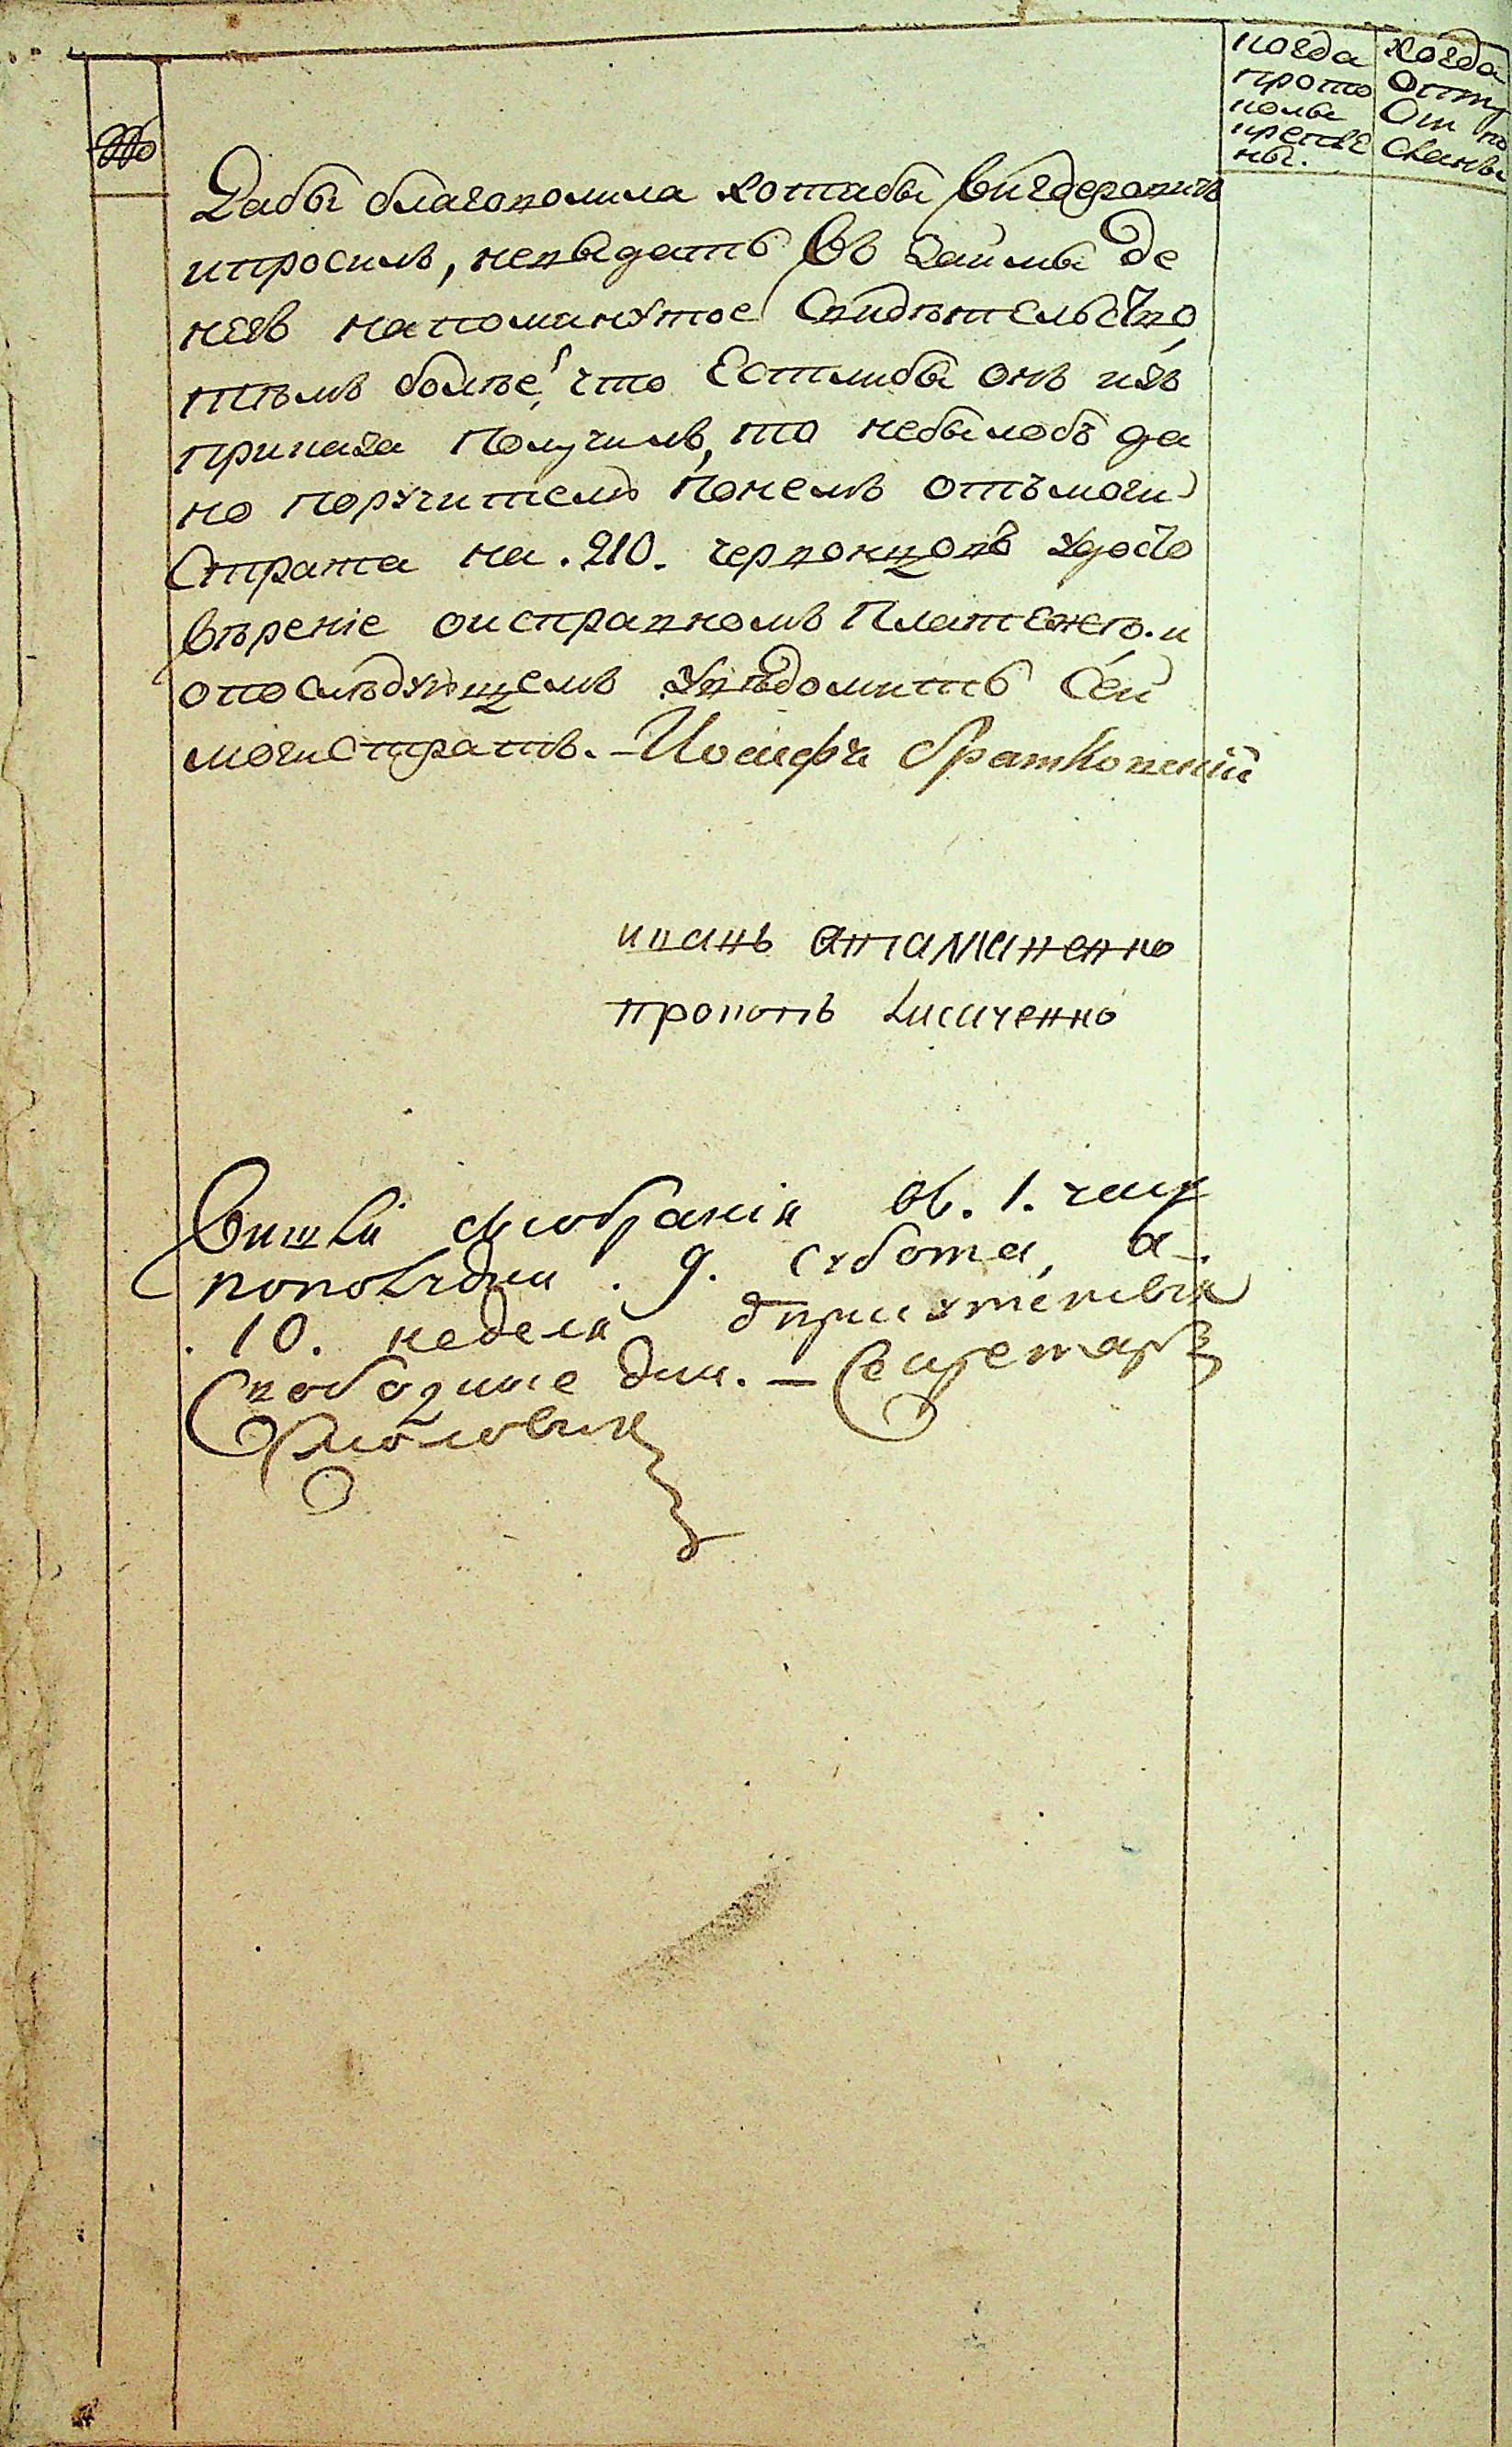 когда
прото
колы
крепле
ны.
когда
Отпу
От по
сланы
№
Дабы благоволила хотябы Вигдеровичъ
ипросилъ, невыдать Въ Займы де
негъ напомянутое Свидѣтельство,
тѣмъ болѣе, что Естлибы онъ изъ
приказа Получилъ, то небылобъ да
но поручителю Понемъ отъмаги
Страта на .210. червонцовъ удосто
вѣреніе оисправномъ Платежегъ. и
опослѣдующемъ Увѣдомить Сей
магистратъ. - Иосифъ Братковскій
иванъ атаманенко
прокопъ Лисиченко
Вишли зсобранія въ. 1. часу
пополудни . 9. субота, а.
. 10. неделя дприсутствія
Свободние дни. - Секретарь